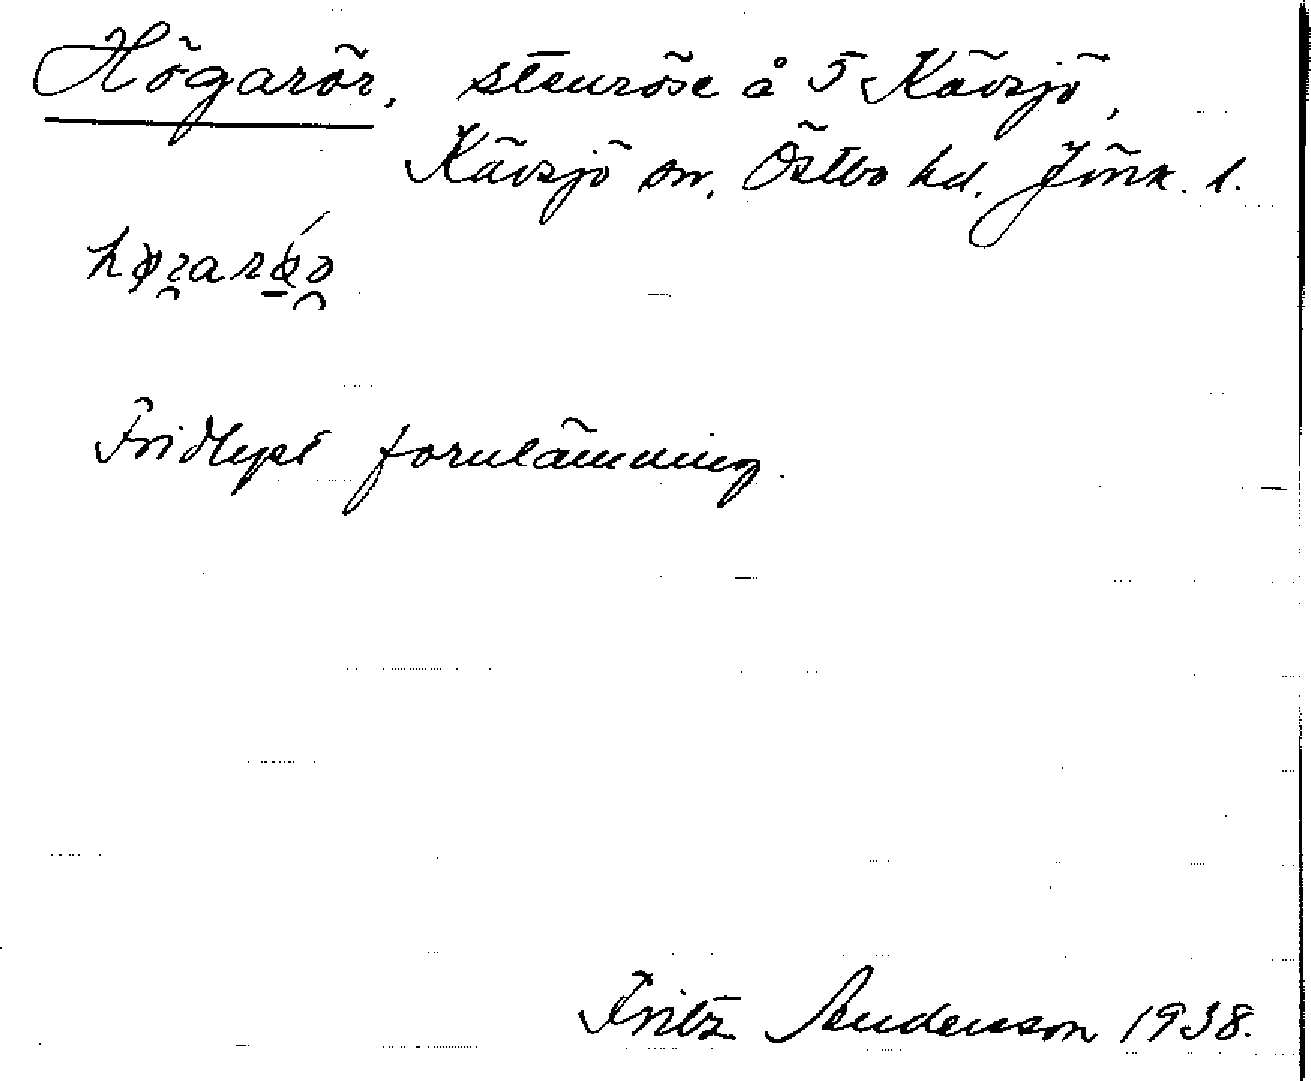 Högarör, stenröse å 5 Kävsjö,
Kävsjö sn, Östbo hd. Jönk. l.
Fridlyst fornlämning.
Fritz Andersson 1938.